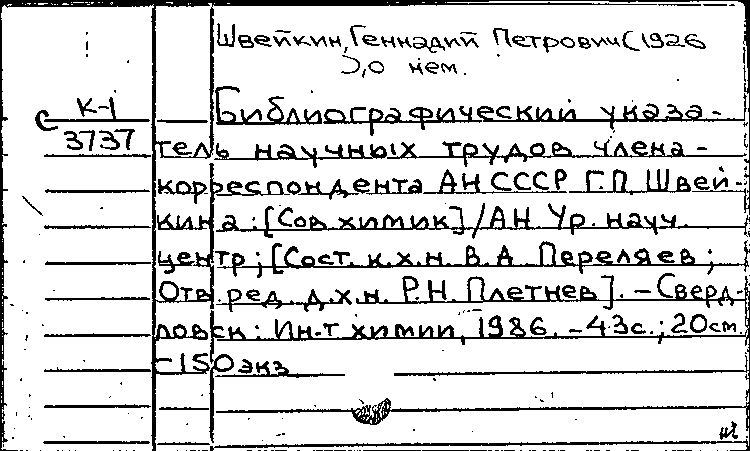 Швейкин, Геннадий Петрович (1926
), о нем.
С К-1
3737
Библиографический указа-
тель научных трудов члена-
корреспондента АН СССР Г.П. Швей-
кина : [Сов. химик] / АН Ур. науч.
центр ; [Сост. к.х.н. В.А. Переляев ;
Отв. ред. д.х.н. Р.Н. Плетнев]. – Сверд-
ловск : Ин-т химии, 1986. – 43с. ; 20см.
– 150 экз